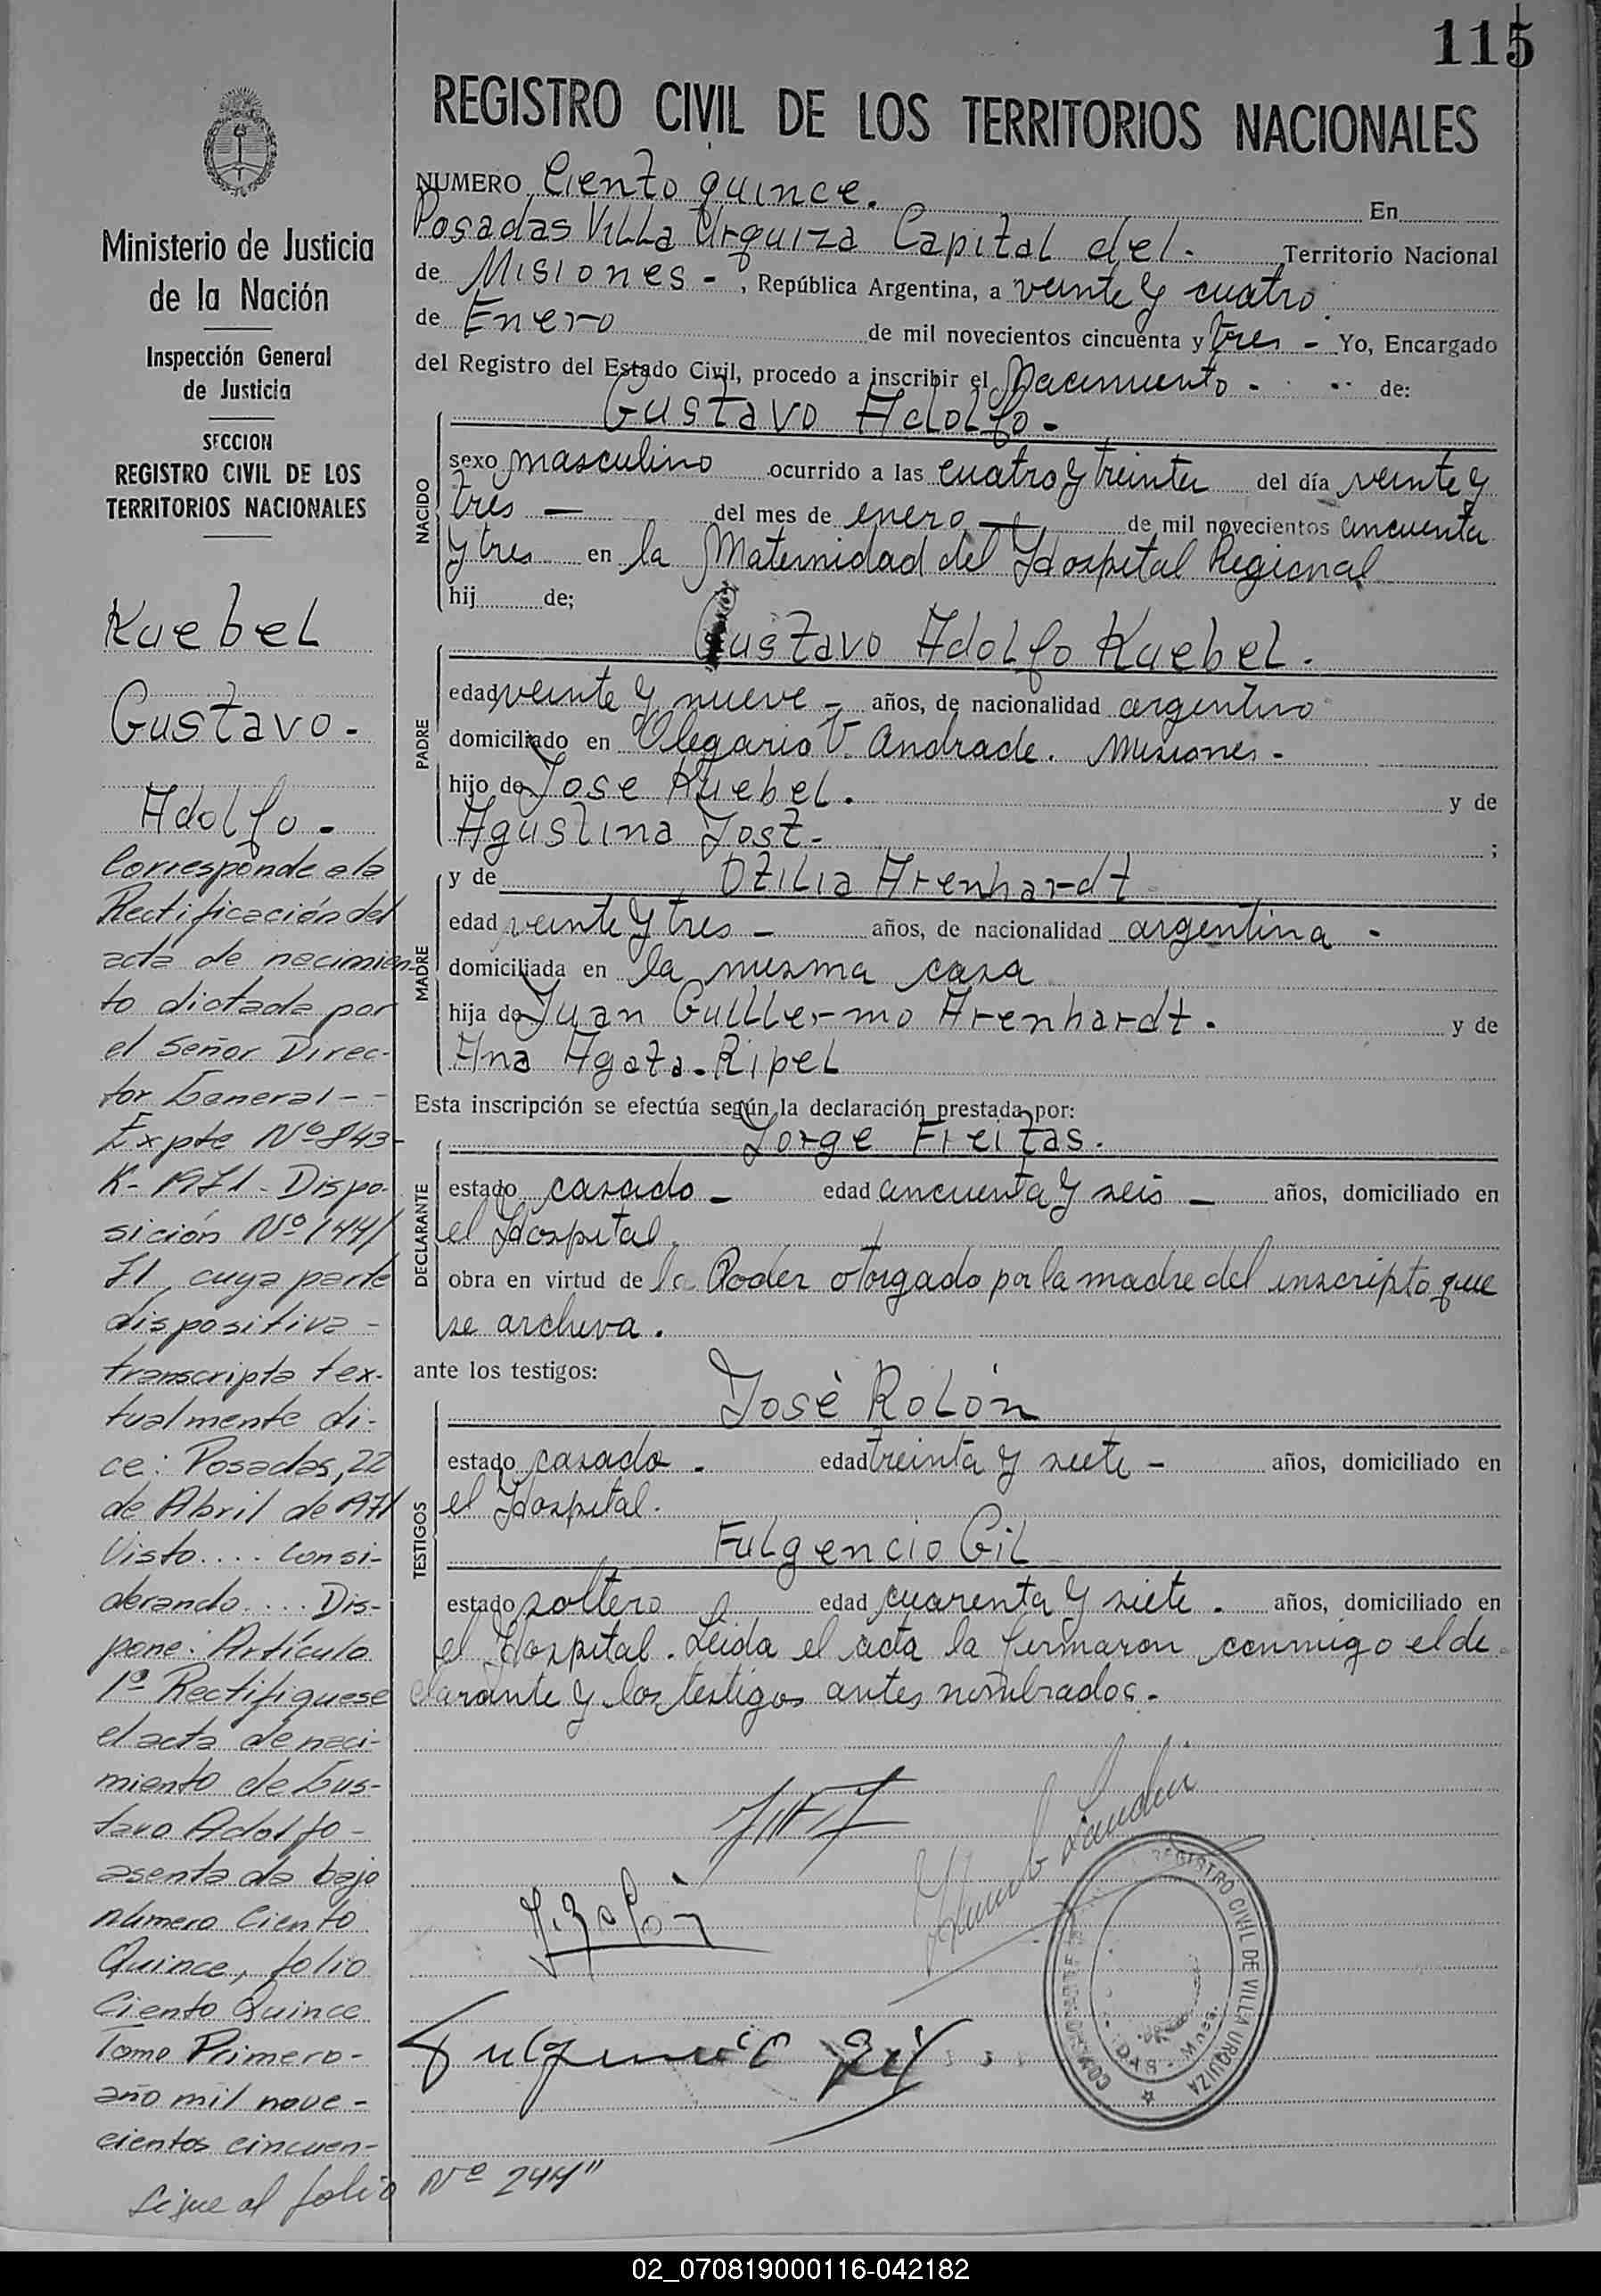 115
REGISTRO CIVIL DE LOS TERRITORIOS NACIONALES
Ministerio de Justicia
de la Nación
Inspección General
de Justicia
SECCION
REGISTRO CIVIL DE LOS
TERRITORIOS NACIONALES
Kuebel
Gustavo-
Adolfo-
Corresponde a la
Rectificación del
acta de nacimien-
to dictada por
el Señor Direc-
tor General--
Expte Nº 843-
K-1971-Dispo-
sición Nº 144/
71, cuya parte
dispositiva-
transcripta tex-
tualmente di-
ce: Posadas, 22
de Abril de 1971
Visto.... Consi-
derando.... Dis-
pone: Artículo
1º Rectifiquese
el acta de naci-
miento de Gus-
tavo Adolfo-
asentada bajo
número Ciento
Quince, folio
Ciento Quince
Tomo Primero-
año mil nove-
cientos cincuen-
Sigue al folio Nº 244"
NUMERO Ciento quince. En
Posadas Villa Urquiza Capital del. Territorio Nacional
de Misiones-, República Argentina, a veinte y cuatro
de Enero de mil novecientos cincuenta y tres - Yo, Encargado
del Registro del Estado Civil, procedo a inscribir el Nacimiento - de:
Gustavo Adolfo-
NACIDO
sexo masculino ocurrido a las cuatro y treinta del día veinte y
tres — del mes de enero — de mil novecientos cincuenta
y tres en la Maternidad del Hospital Regional
hij de;
Gustavo Adolfo Kuebel.
PADRE
edad veinte y nueve - años, de nacionalidad argentino
domiciliado en Olegario V. Andrade. Misiones-
hijo de Jose Kuebel. y de
Agustina Jost- ;
y de Otilia Arenhardt
MADRE
edad veinte y tres - años, de nacionalidad argentina -
domiciliada en la misma casa
hija de Juan Guillermo Arenhardt. y de
Ana Agata-Ripel
Esta inscripción se efectúa según la declaración prestada por:
Jorge Freitas.
DECLARANTE
estado casado - edad cincuenta y seis - años, domiciliado en
el Hospital.
obra en virtud de la Poder otorgado por la madre del inscripto que
se archiva.
ante los testigos:
José Rolón
TESTIGOS
estado casado. edad treinta y siete - años, domiciliado en
el Hospital.
Fulgencio Gil
estado soltero edad cuarenta y siete. años, domiciliado en
el Hospital. Leida el acta la firmaron conmigo el de
clarante y los testigos antes nombrados.-
J. Rolón
Fulgencio Gil
REGISTRO CIVIL DE VILLA URQUIZA
02_070819000116-042182